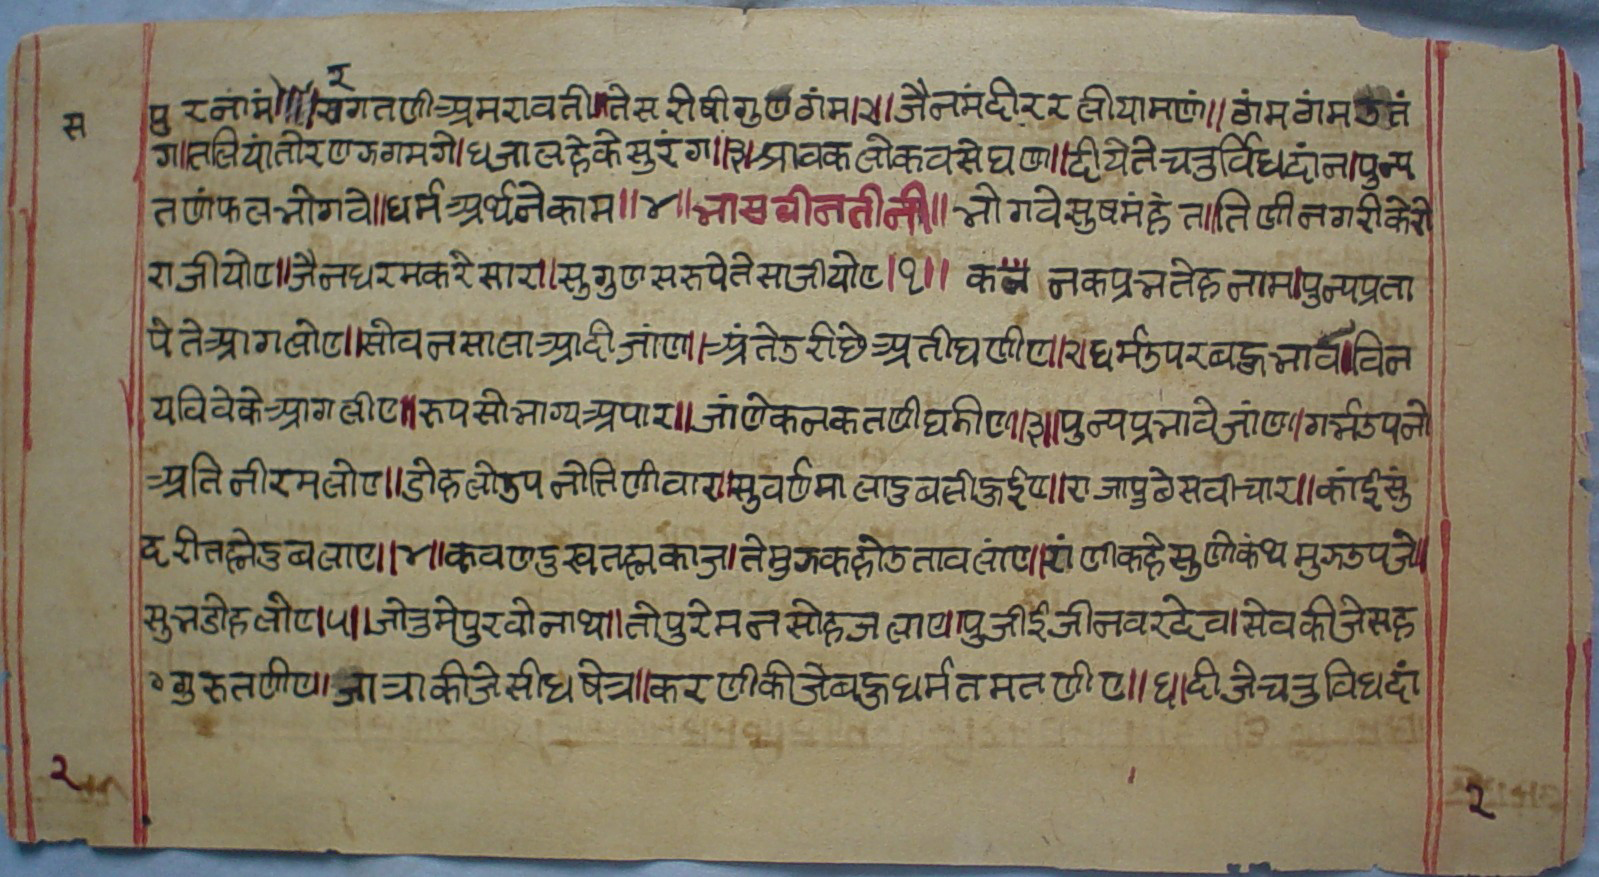 र
स
पुरनांमं॥॥स्वगतणीअमरावती॥तेसरीषीगुणगंम।२॥जैनमंदीररलीयामणं॥ठंमठंमउतं
ग॥तलियांतोरणऊगमगे॥धजालहेकेसुरंग॥३॥श्रावकलोकवसेघण॥दीयेतेचतुर्विधदांन॥पुन्य
तणंफलभोगवे॥धर्मअर्थनेकाम॥४॥भासवीनतीनी॥भोगवेसुषमंहंत॥तिणीनगरीकेरो
राजीयोए॥जैनधरमकरेसार॥सुगुणसरुपेतेसाजीयोए।१॥कनकप्रभतेहनाम॥पुन्यप्रता
पेतेआगलोए॥सोवनसालाआदीजांण॥अंतेउरीछेअतीघणीए॥२॥धर्मउपरबहुभाव॥विन
यविवेकेआगलीए॥रुपसोभाग्यअपार॥जांणेकनकतणीघडीए॥३॥पुन्यप्रभावेजांण॥गर्भउपनो
अतिनीरमलोए॥डोहलोउपनोतिणीवार॥सुवर्णमालादुबलीहुईए॥राजापुछेसवीचार॥कांईसुं
दरीतह्मेदुबलाए॥४॥कवणदुखतह्मकाज।तेमुऊकहोउतावलांए॥रांणीकहेसुणीकंथमुऊउपजे॥
सुभडोहलोए।५॥जोतुमेपुरवोनाथ॥तोपुरेमनसोहजलाए॥पुजीईजीनवरदेव।सेवकीजेसह
गुरुतणीए॥जात्राकीजेसीधषेत्र॥करणीकीजेबहुधर्मतमतणीए॥६॥दीजेचतुविधदां
२
२